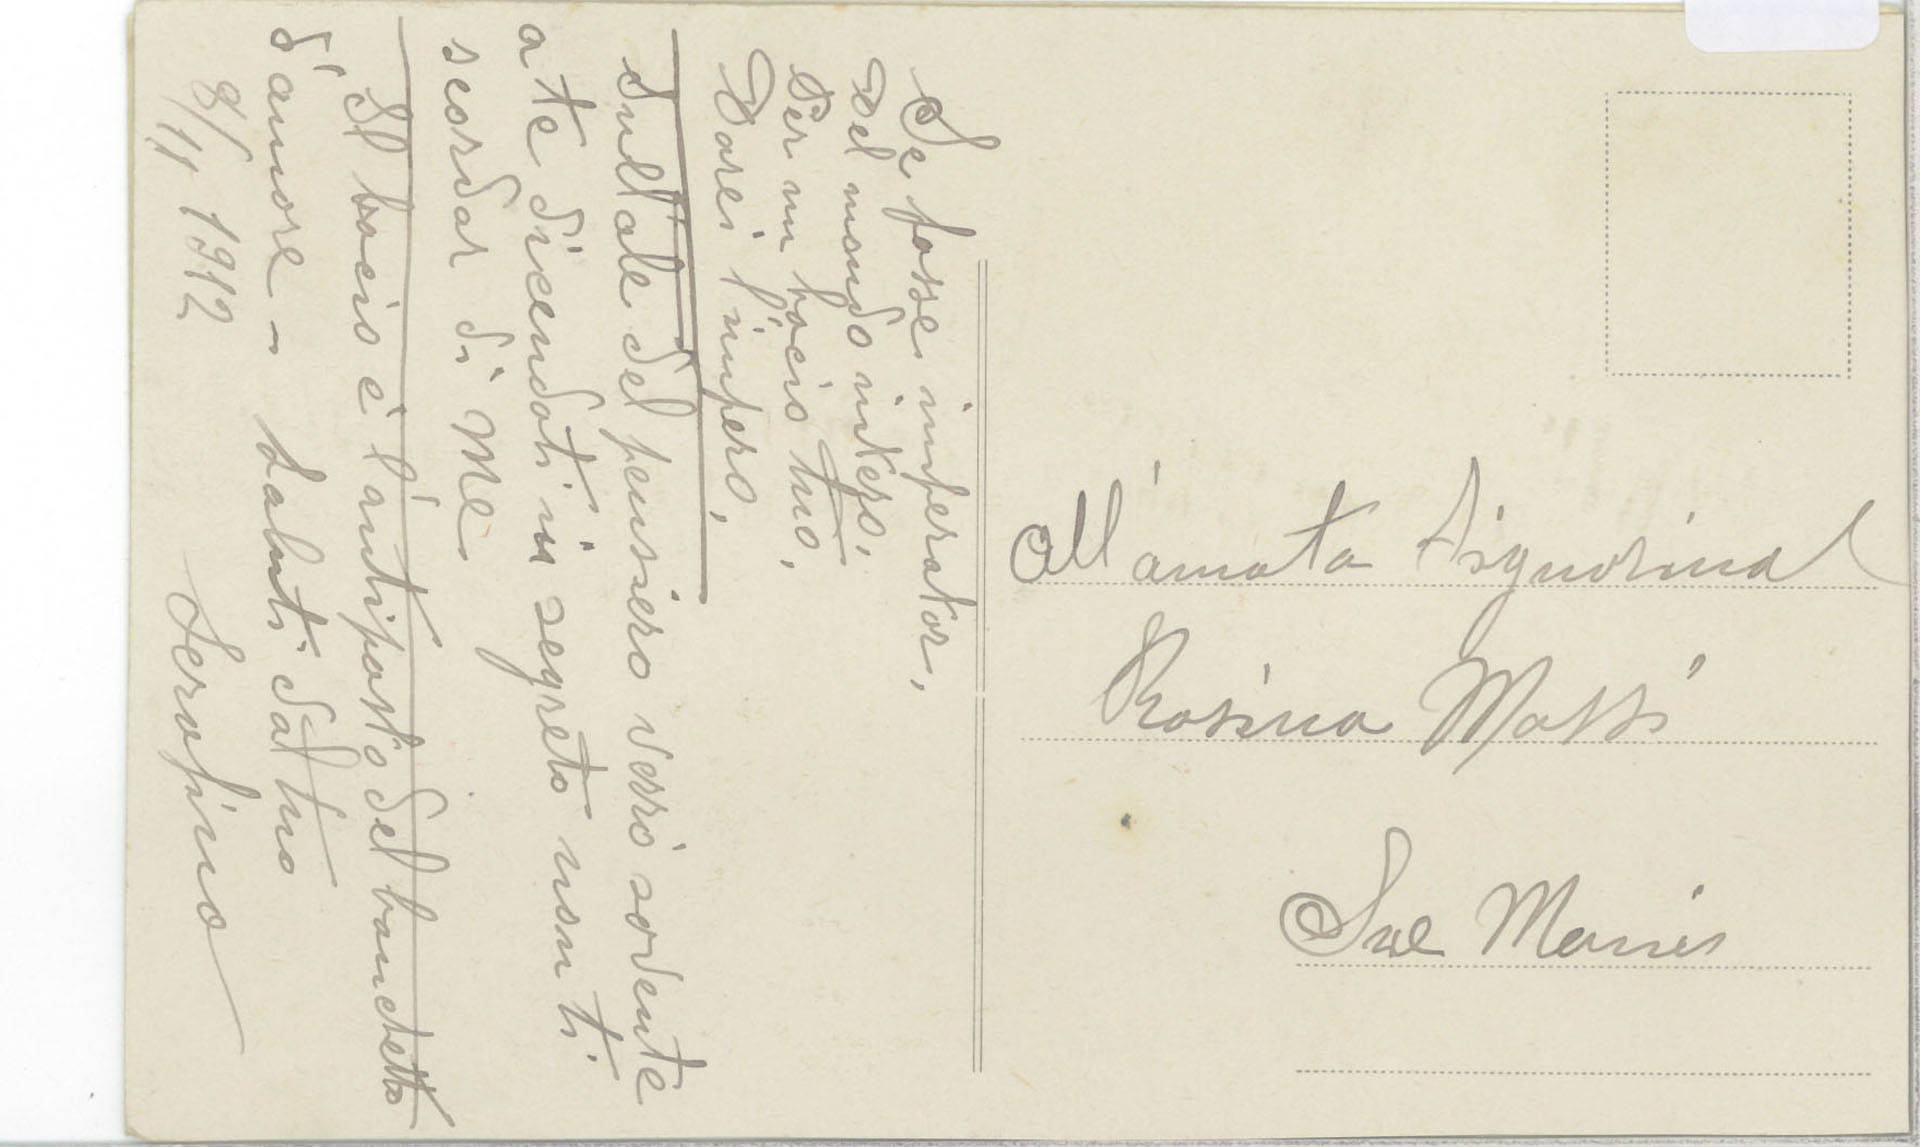 Se fossi imperator,
Del mondo intero,
Per un bacio tuo,
Darei l'impero,
Sull'ale del pensiero verrò sovente
a te dicendoti in segreto non ti
scordar di me
Il bacio è l'antipasto del banchetto
d'amore - Saluti dal tuo
8/11 1912 Serafino
All'amata Signorina
Rosina Massi
Sue Mani